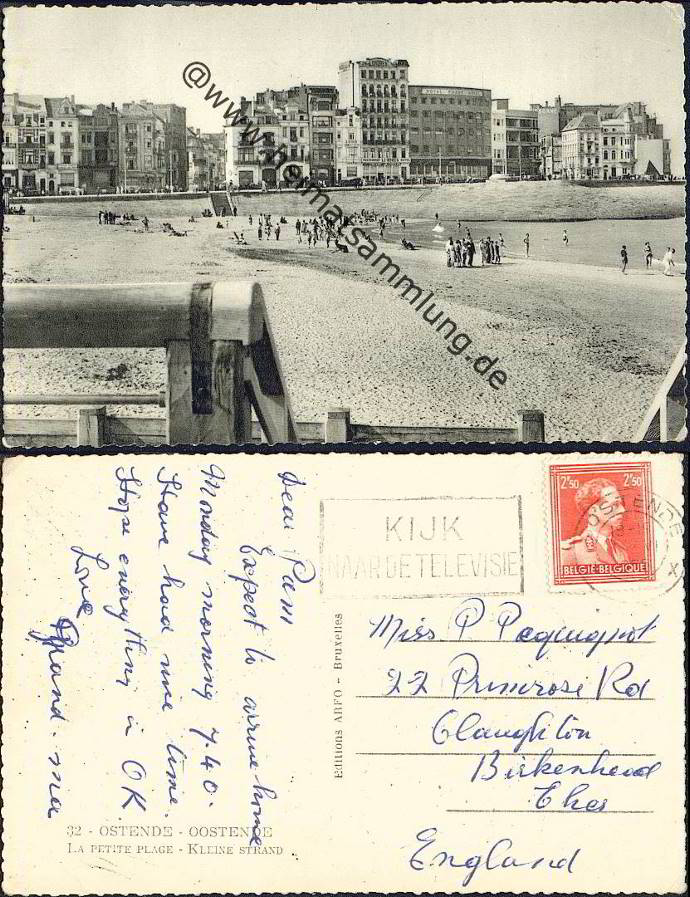 @www.heimatsammlung.de
KIJK
NAAR DE TELEVISIE
OSTENDE
2'50 2'50
BELGIË-BELGIQUE
Dear Pam
Expect to arrive home
Monday morning 7.40.
Have had nice time.
Hope everything is OK
Love
Grand-ma
Editions ARFO - Bruxelles
Miss P
22 Primrose Rd
Claughton
Birkenhead
Ches
England
32 - OSTENDE - OOSTENDE
LA PETITE PLAGE - KLEINE STRAND